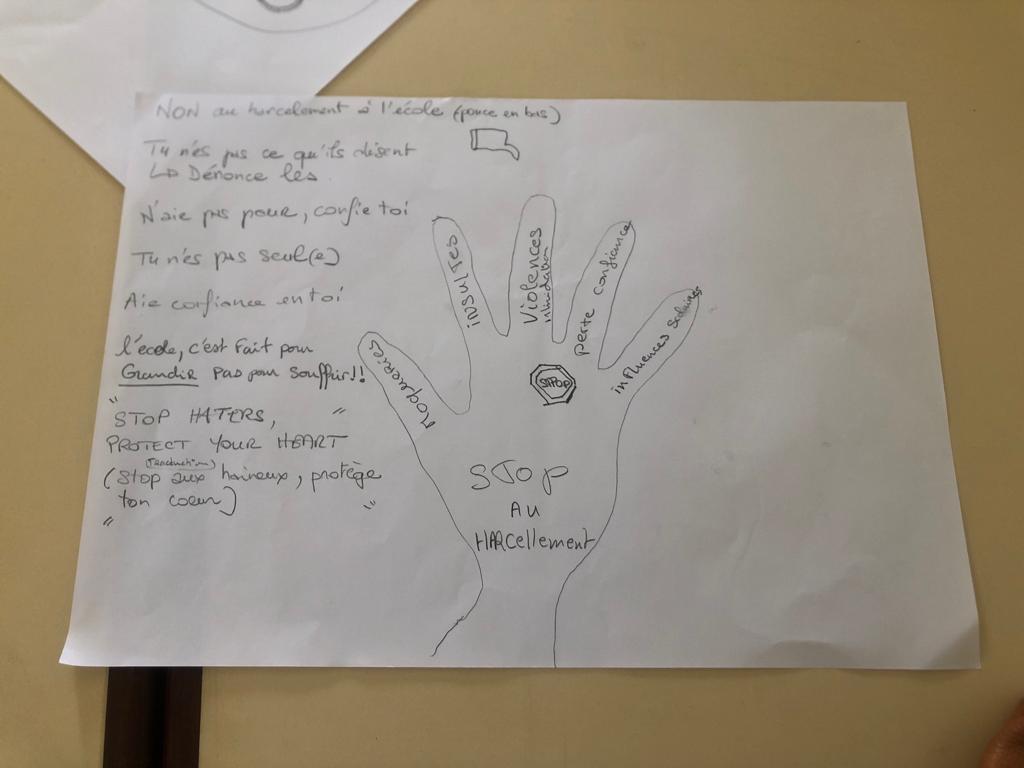 NON au harcelement à l'école (pouce en bas)
Tu n'es pas ce qu'ils disent
↳ Dénonce les
N'aie pas pour, confie toi
Tu n'es pas seul(e)
Aie confiance en toi
l'école, c'est Fait pour
Grandir Pas pour souffrir!!
" STOP HATERS, "
PROTECT YOUR HEART
(traduction)
(Stop aux haineux, protège
ton coeur)
" "
Moqueries
insultes
Violences
intimidation
perte confiance
influences scolaires
STOP
STOP
AU
HARCellement